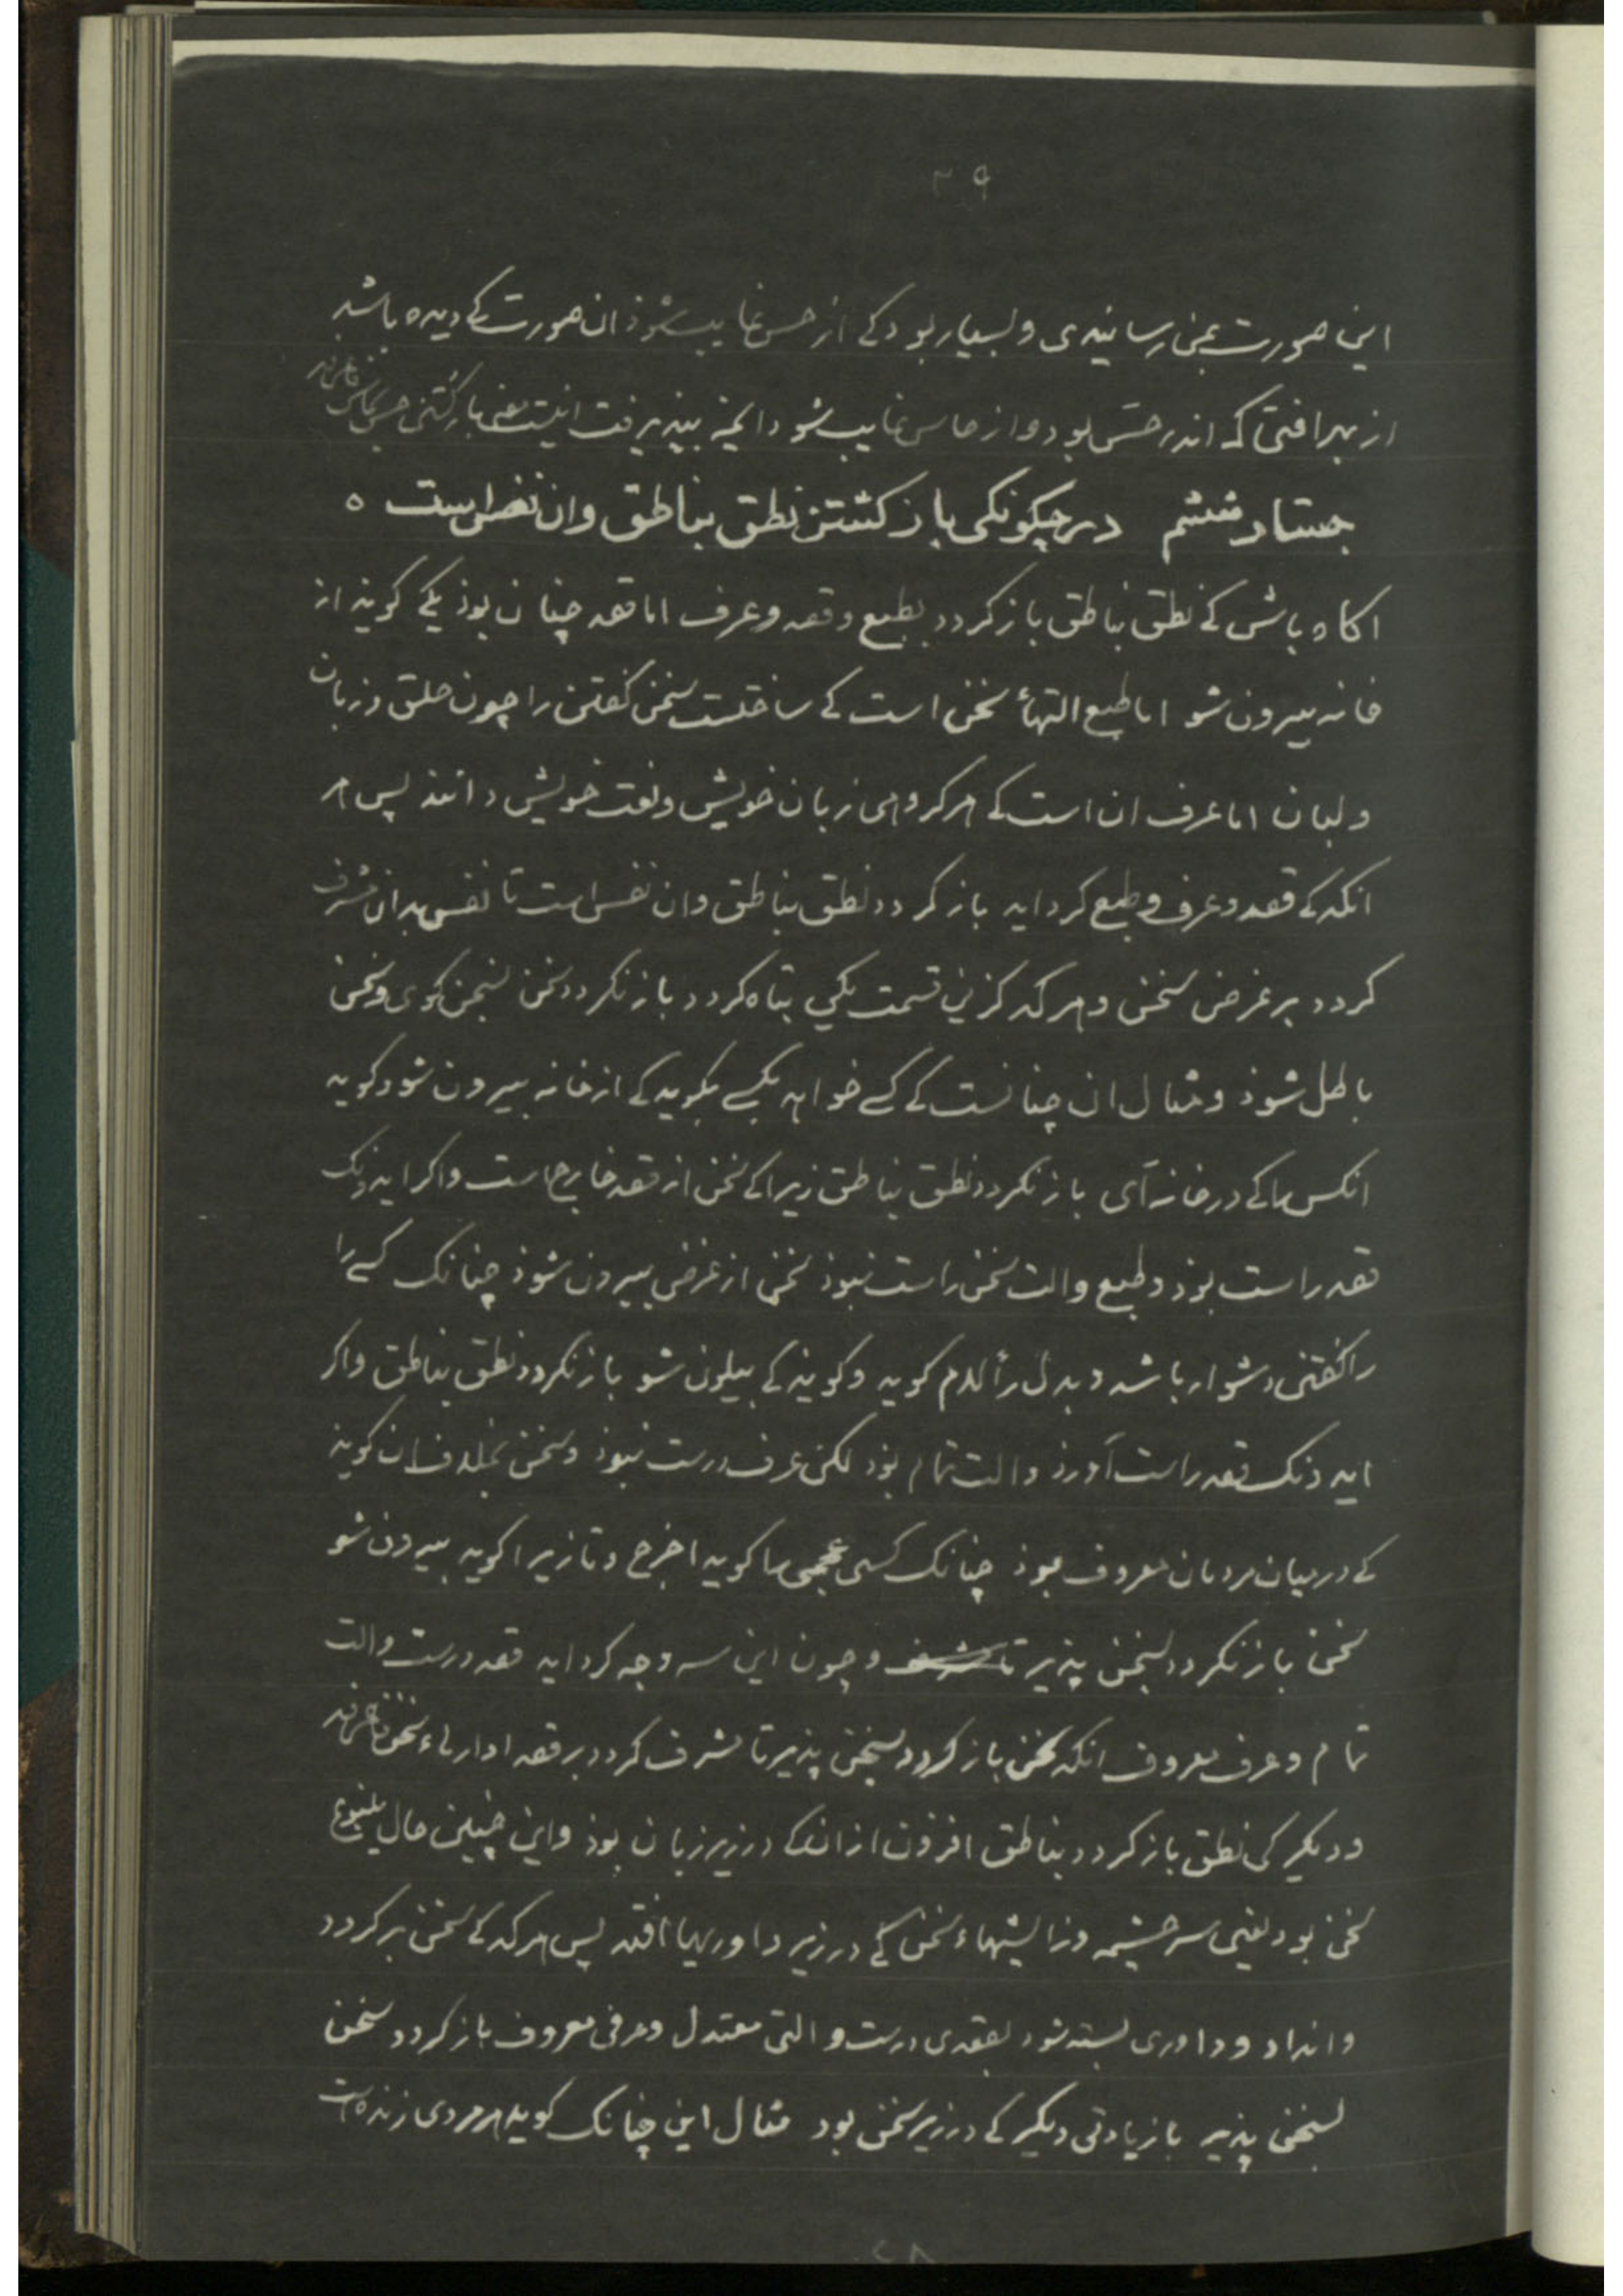 ۳۹
این صورت بمن رسانیدی و بسیار بود کے از حس غایب شوذ ان صورت کے دیده باشد
از بهر افتی که اندر حسّ بود و از حاس غایب شود انچ بپذیرفت اینست معنی بازگشتن حس بحاس
جستار ششم در چکونکی باز کشتن نطق بناطق وان نفس است ه
اکاه باش کے نطق بناطق باز کردد بطبع و قصد و عرف اما قصد چنان بوذ یکے کویذ از
خانه بیرون شو اما طبع التهاء سخن است کے ساختست سخن کفتن را چون حلق و زبان
و لبان اما عرف ان است کے هر کروهی زبان خویش و لغت خویش دانند پس هر
انکه کے قصد و عرف و طبع کرد اید باز کردد نطق بناطق وان نفس است تا نفس بدان مشرف
کردد بر غرض سخن و هر که کزین قسمت یکی بتاه کردد باز نکردد سخن بسخن کوی و سخن
باطل شوذ و مثال ان چنانست کے کسے خواهد بکسے بکوید کے از خانه بیرون شو و کوید
انکس را کے در خانه آی باز نکردد نطق بناطق زیرا کے سخن از قصد خارج است و اکر ایذونک
قصد راست بوذ و طبع والت سخن راست نبوذ سخن از غرض بیرون شوذ چنانک کسے را
را کفتن دشوار باشد و بدل رأ لام کوید و کویذ کے بیلون شو باز نکردد نطق بناطق و اکر
ایذونک قصد راست آورذ والت تمام بوذ لکن عرف درست نبوذ و سخن بخلاف ان کویذ
کے در میان مردمان معروف بوذ چنانک کسی عجمی را کوید اخرج و تازی را کوید بیرون شو
سخن باز نکردد بسخن پذیر تا و چون این سه وجه کرد اید قصد درست والت
تمام و عرف معروف انکه سخن باز کردد بسخن پذیر تا مشرف کردد بر قصد
و دیکر کی نطق باز کردد بناطق افزون از انک در زیر زبان بوذ و این چنین حال ینبوع
سخن بود یعنی سر چشمه و زایشهاء سخن کے در زیر داوریها افتد پس هر که کے سخن بر کردد
و اندا و داوری بسته شود بقصدی درست و التی معتدل و عرفی معروف باز کردد سخن
بسخن پذیر با زیادتی دیکر کے در زیر سخن بود مثال این چنانک کوید هر مردی زنده است